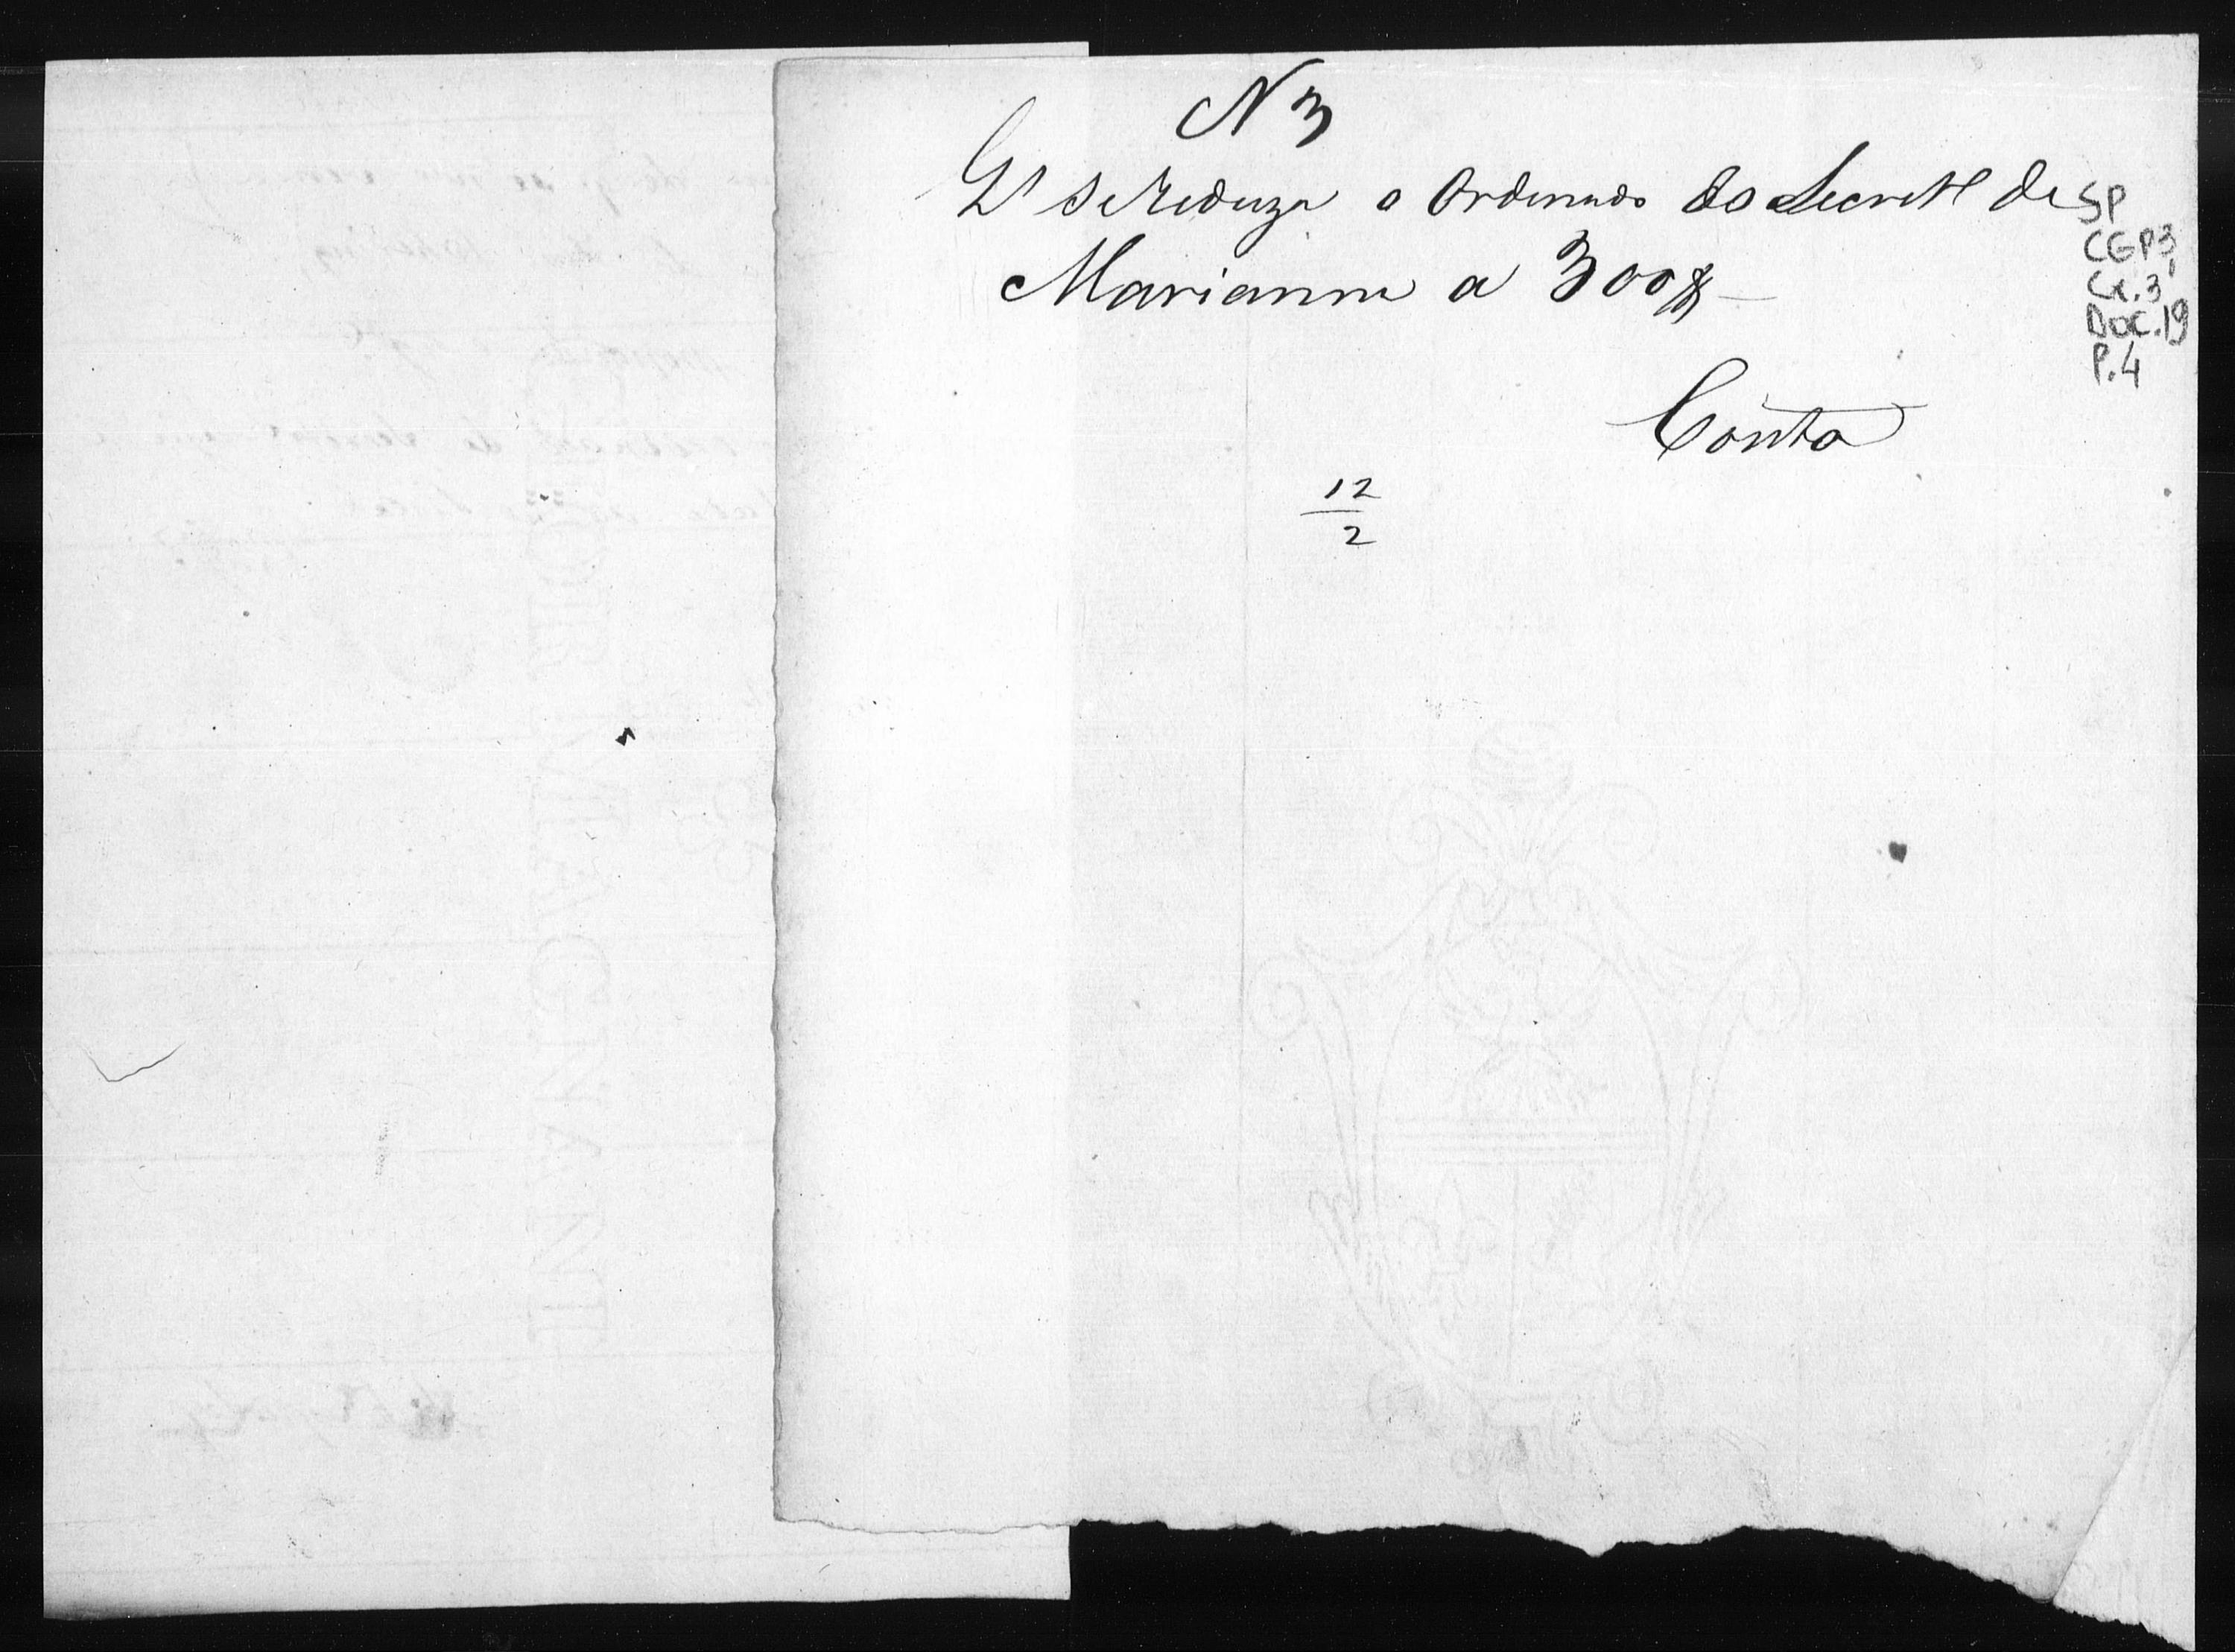 N 3
Q' se Reduza o Ordenado do Secretº de
Marianna a 300$
Conta
12
2
SP
CGP3,
Cx.3
Doc.19
P.4